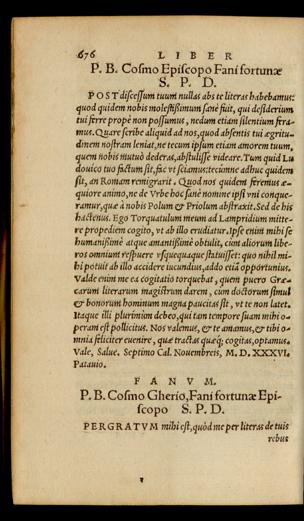 676 LIBER
P. B. Cosmo Episcopo Fani fortunæ
S. P. D.
POST discessum tuum nullas abs te literas habebamus:
quod quidem nobis molestißimum sanè fuit, qui desiderium
tui ferre propè non possumus, nedum etiam silentium fera-
mus. Quare scribe aliquid ad nos, quod absentis tui ægritu-
dinem nostram leniat, ne tecum ipsum etiam amorem tuum,
quem nobis mutuò dederas, abstulisse videare. Tum quid Lu
douico tuo factum sit, fac vt sciamus: tecumne adhuc quidem
sit, an Romam remigrarit. Quod nos quidem feremus æ-
quiore animo, ne de Vrbe hoc sanè nomine ipsi vni conque-
ramur, quæ à nobis Polum & Priolum abstraxit. Sed de his
hactenus. Ego Torquatulum meum ad Lampridium mitte-
re propediem cogito, vt ab illo erudiatur. Ipse enim mihi se
humanißimè atque amantißimè obtulit, cùm aliorum libe-
ros omnium respuere vsquequaque statuisset: quo nihil mi-
hi potuit ab illo accidere iucundius, addo etiā opportunius.
Valde enim me ea cogitatio torquebat, quem puero Græ-
carum literarum magistrum darem, cùm doctorum simul
& bonorum hominum magna paucitas sit, vt te non latet.
Itaque illi plurimùm debeo, qui tam tempore suam mihi o-
peram est pollicitus. Nos valemus, & te amamus, & tibi o-
mnia feliciter euenire, quæ tractas quæq; cogitas, optamus.
Vale, Salue. Septimo Cal. Nouembreis, M. D. XXXVI.
Patauio.
FANVM.
P. B. Cosmo Gherio, Fani fortunæ Epi-
scopo S. P. D.
PERGRATVM mihi est, quòd me per literas de tuis
rebus